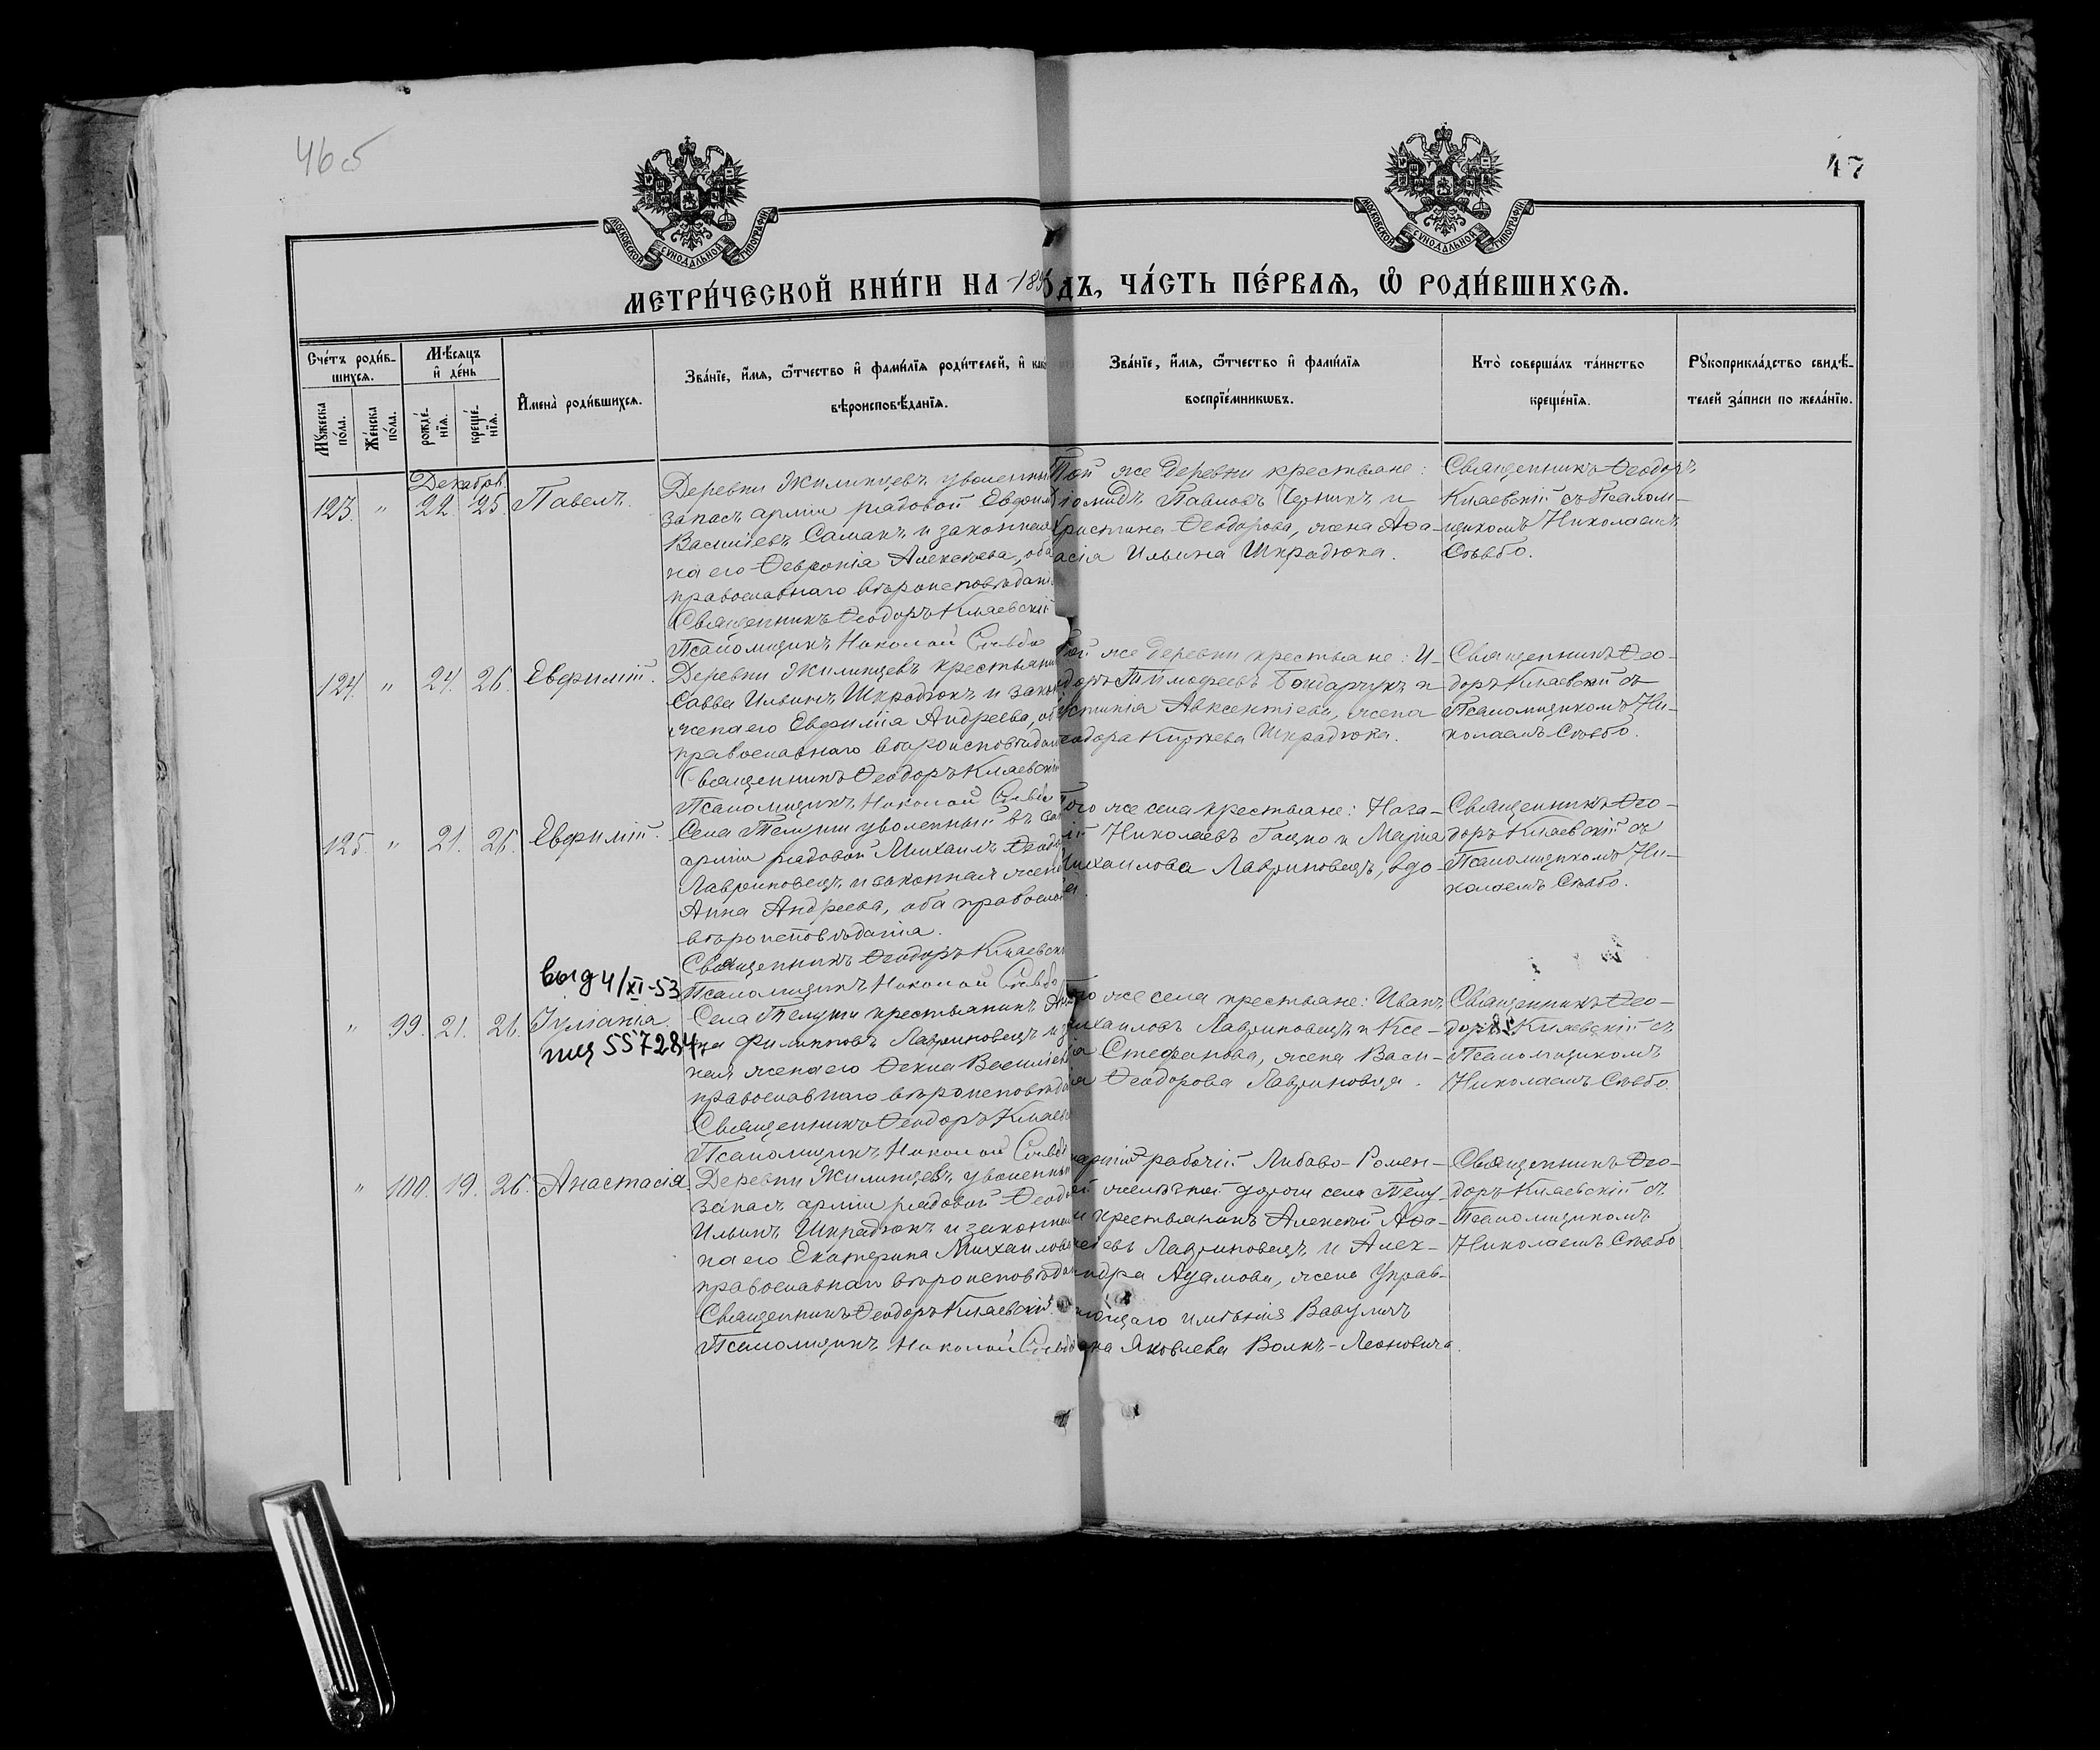 46 об
47
МОСКОВСКОЙ СѴНОДАЛЬНОЙ ТИПОГРАФІИ
МОСКОВСКОЙ СѴНОДАЛЬНОЙ ТИПОГРАФІИ
МЕТРИ́ЧЕСКОЙ КНИ́ГИ НА 189
ДЪ, ЧА́СТЬ ПЕ́РВАѦ, Ѽ РОДИ́ВШИХСѦ.
Счéтъ роди́в-
шихсѧ.
Мѣ́сѧцъ
и҆ де́нь
И҆мена̀ роди́вшихсѧ.
Зва́нїе, и҆́мѧ, ѻ҆́тчество и҆ фами́лїѧ роди́телей, и҆ как
вѣроисповѣ́данїѧ.
Зва́нїе, и҆́мѧ, ѻ҆́тчество и҆ фами́лїѧ
воспрїе́мникѡвъ.
Кто̀ соверша́лъ та́инство
креще́нїѧ.
Рꙋкоприкла́дство свидѣ́-
телей за́писи по жела́нїю.
Мꙋ́жеска
по́ла.
Же́нска
по́ла.
рожде́-
нїѧ.
креще́-
нїѧ.
Декабрь
123. " 22. 25. Павелъ.
Деревни Жилинцевъ уволенный
запасъ арміи рядовой Евфим
Васильевъ Самакъ и законная
на его Ѳевронія Алексѣева, оба
православнаго вѣроисповѣдані
Священникъ Ѳеодоръ Кляевскій
Псаломщикъ Николай Сѣвбо
Той же деревни крестьяне:
іомидъ Павловъ Черникъ и
Христина Ѳеодорова, жена Аѳа-
асія Ильина Шкрадюка.
Священникъ Ѳеодоръ
Кляевскій съ Псалом-
щикомъ Николаемъ
Сѣвбо.
124. " 24. 26. Евфимій.
Деревни Жилинцевъ крестьянин
Савва Ильинъ Шкрадюкъ и закон
жена его Евфимія Андреева, об
православнаго вѣроисповѣдан
Священникъ Ѳеодоръ Кляевскій
Псаломщикъ Николай Сѣвбо
Той же деревни крестьяне: И-
доръ Тимофеевъ Бондарчукъ и
устинія Авксентіева, жена
еодора Шкрадюка.
Священникъ Ѳео-
доръ Кляевскій съ
Псаломщикомъ Ни-
колаемъ Сѣвбо.
125. " 21. 26. Евфимій.
Села Телуши уволенный въ зап
арміи рядовой Михаилъ Ѳеодо
Лавриновецъ и законная жена
Анна Андреева, оба правосла
вѣроисповѣданія.
Священникъ Ѳеодоръ Кляевск
Псаломщикъ Николай Сѣвбо
Того же села крестьяне: Наза-
ій Николаевъ Гацко и Марія
Михаилова Лавриновецъ, вдо-
а.
Священникъ Ѳео-
доръ Кляевскій съ
Псаломщикомъ Ни-
колаемъ Сѣвбо.
выд 4/XI-53
" 99. 21. 26. Іуліанія.
557284
Села Телуши крестьянинъ
на Филипповъ Лавриновецъ и за
ная жена его Ѳекла Васильев
православнаго вѣроисповѣда
Священникъ Ѳеодоръ Кляев
Псаломщикъ Николай Сѣвбо
того же села крестьяне: Иванъ
Михаиловъ Лавриновецъ и Ксе-
ія Стефанова, жена Васи-
ія Ѳеодорова Лавриновца.
Священникъ Ѳео-
доръ Кляевскій съ
Псаломщикомъ
Николаемъ Сѣвбо.
" 100. 19. 26. Анастасія
Деревни Жилинцевъ уволенный
запасъ арміи рядовой Ѳеодо
Ильинъ Шкрадюкъ и законная
на его Екатерина Михаилов
православнаго вѣроисповѣдан
Священникъ Ѳеодоръ Кляевскій
Псаломщикъ Николай Сѣвбо
рабочій Либаво-Ромен-
ой желѣзной дороги села Телу-
и крестьянинъ Алексѣй Аѳа-
сьевъ Лавриновецъ и Алек-
ндра Адамова, жена Управ-
яющаго имѣнія Вавуличъ
Яковлева Волкъ-Леоновича.
Священникъ Ѳео-
доръ Кляевскій съ
Псаломщикомъ
Николаемъ Сѣвбо